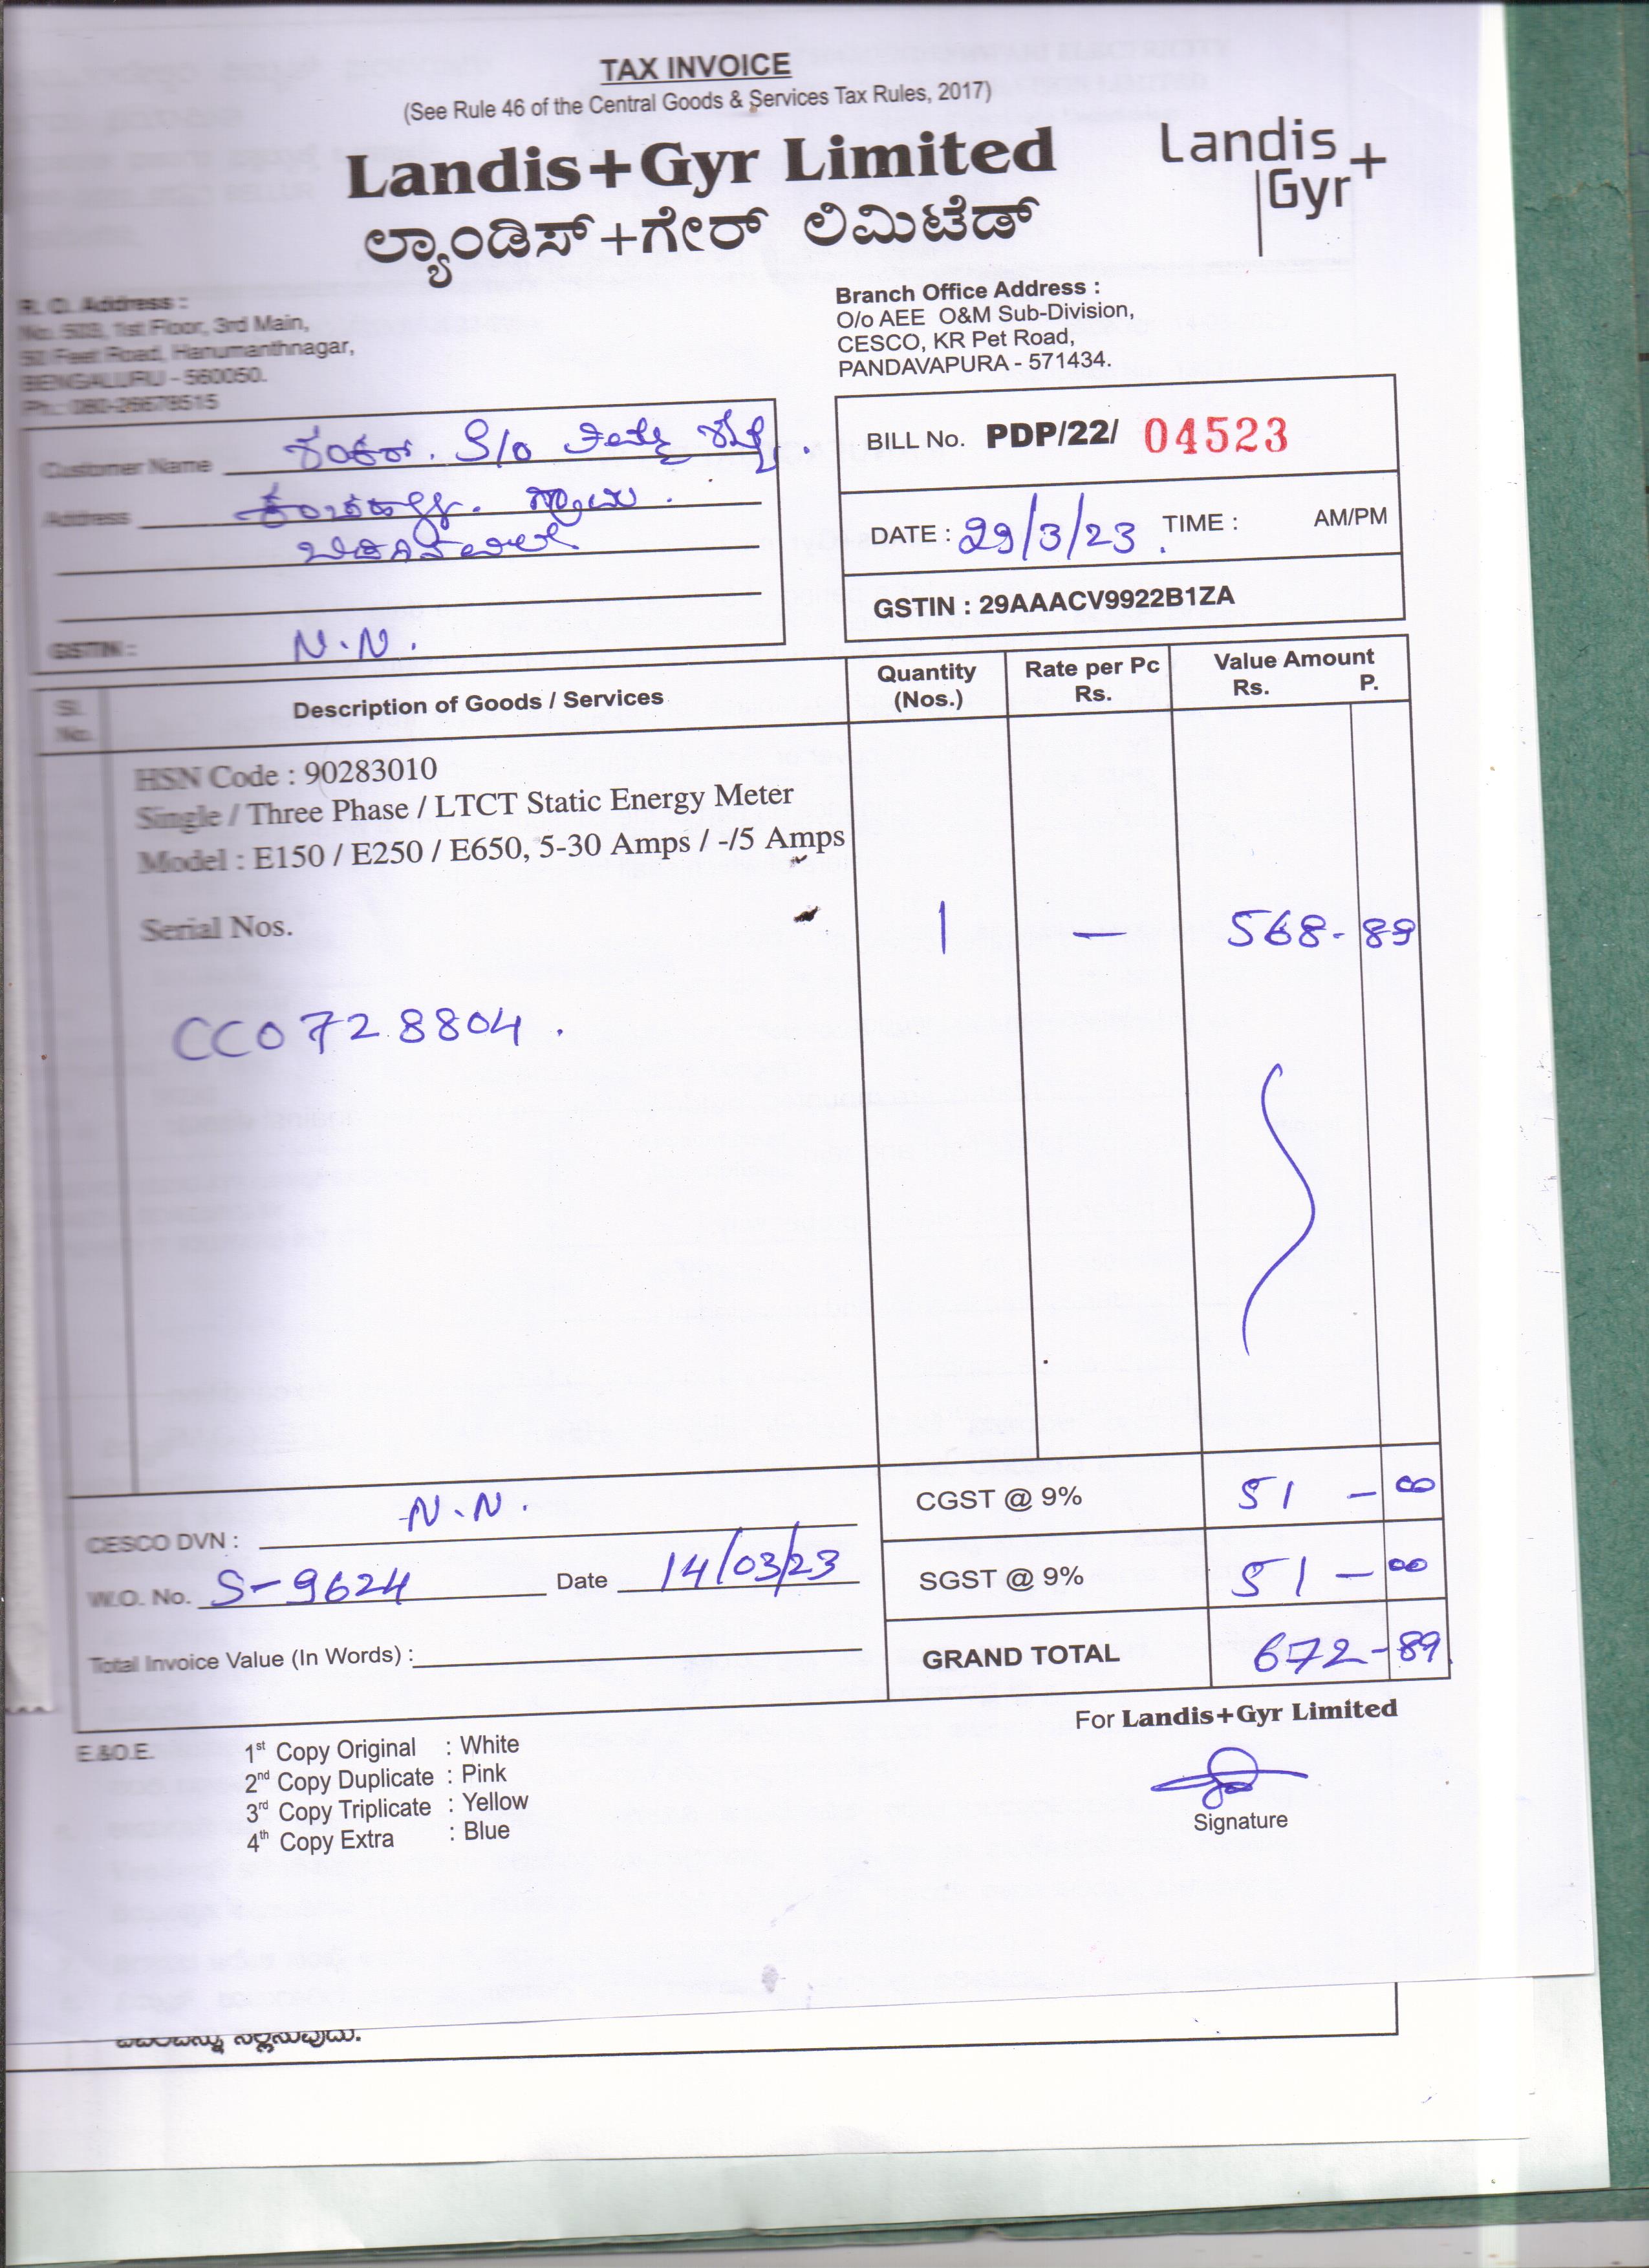 TAX INVOICE
(See Rule 46 of the Central Goods & Services Tax Rules, 2017)
Landis+Gyr Limited
Landis
Gyr+
ಲ್ಯಾಂಡಿಸ್+ಗೇರ್ ಲಿಮಿಟೆಡ್
R. O. Address :
No. 503, 1st Floor, 3rd Main,
50 Feet Road, Hanumanthnagar,
BENGALURU - 560050.
Ph.: 080-26679515
Branch Office Address :
O/o AEE O&M Sub-Division,
CESCO, KR Pet Road,
PANDAVAPURA - 571434.
Customer Name ಶಂಕರ್. S/o
Address
GSTIN : N.N.
BILL No. PDP/22/ 04523
DATE : 29/3/23 TIME : AM/PM
GSTIN : 29AAACV9922B1ZA
Sl. No. Description of Goods / Services Quantity (Nos.) Rate per Pc Rs. Value Amount Rs. P.
HSN Code : 90283010
Single / Three Phase / LTCT Static Energy Meter
Model : E150 / E250 / E650, 5-30 Amps / -/5 Amps
Serial Nos. 1 — 568-89
CC0728804.
CESCO DVN : N.N.
W.O. No. S-9624 Date 14/03/23
Total Invoice Value (In Words) :
CGST @ 9% 51 - 00
SGST @ 9% 51 - 00
GRAND TOTAL 672-89
For Landis+Gyr Limited
Signature
E.&O.E.
1st Copy Original : White
2nd Copy Duplicate : Pink
3rd Copy Triplicate : Yellow
4th Copy Extra : Blue